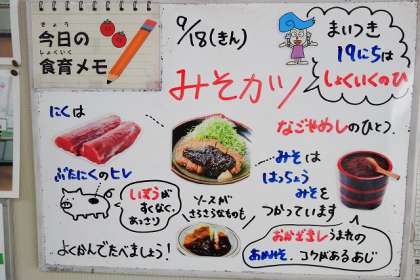 きょう
今日の
しょくいく
食育メモ
9/18(きん)
まいつき
19にちは
しょくいくのひ
みそカツ
にくは
ぶたにくのヒレ
しぼうが
すくなく、
あっさり
なごやめしのひとつ
みそは
はっちょう
みそを
つかっています
ソースが
さらさらなものも
おかざきしうまれの
あかみそ、コクがあるあじ
よくかんでたべましょう!